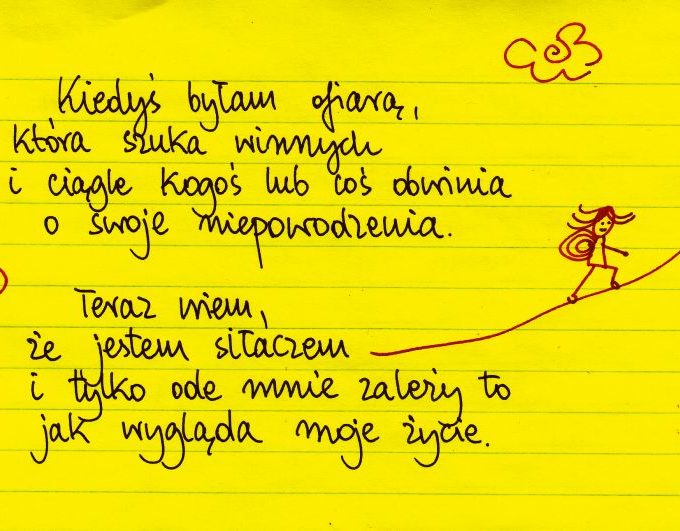 Kiedyś byłam ofiarą,
która szuka winnych
i ciągle kogoś lub coś obwinia
o swoje niepowodzenia.
Teraz wiem,
że jestem siłaczem
i tylko ode mnie zależy to
jak wygląda moje życie.